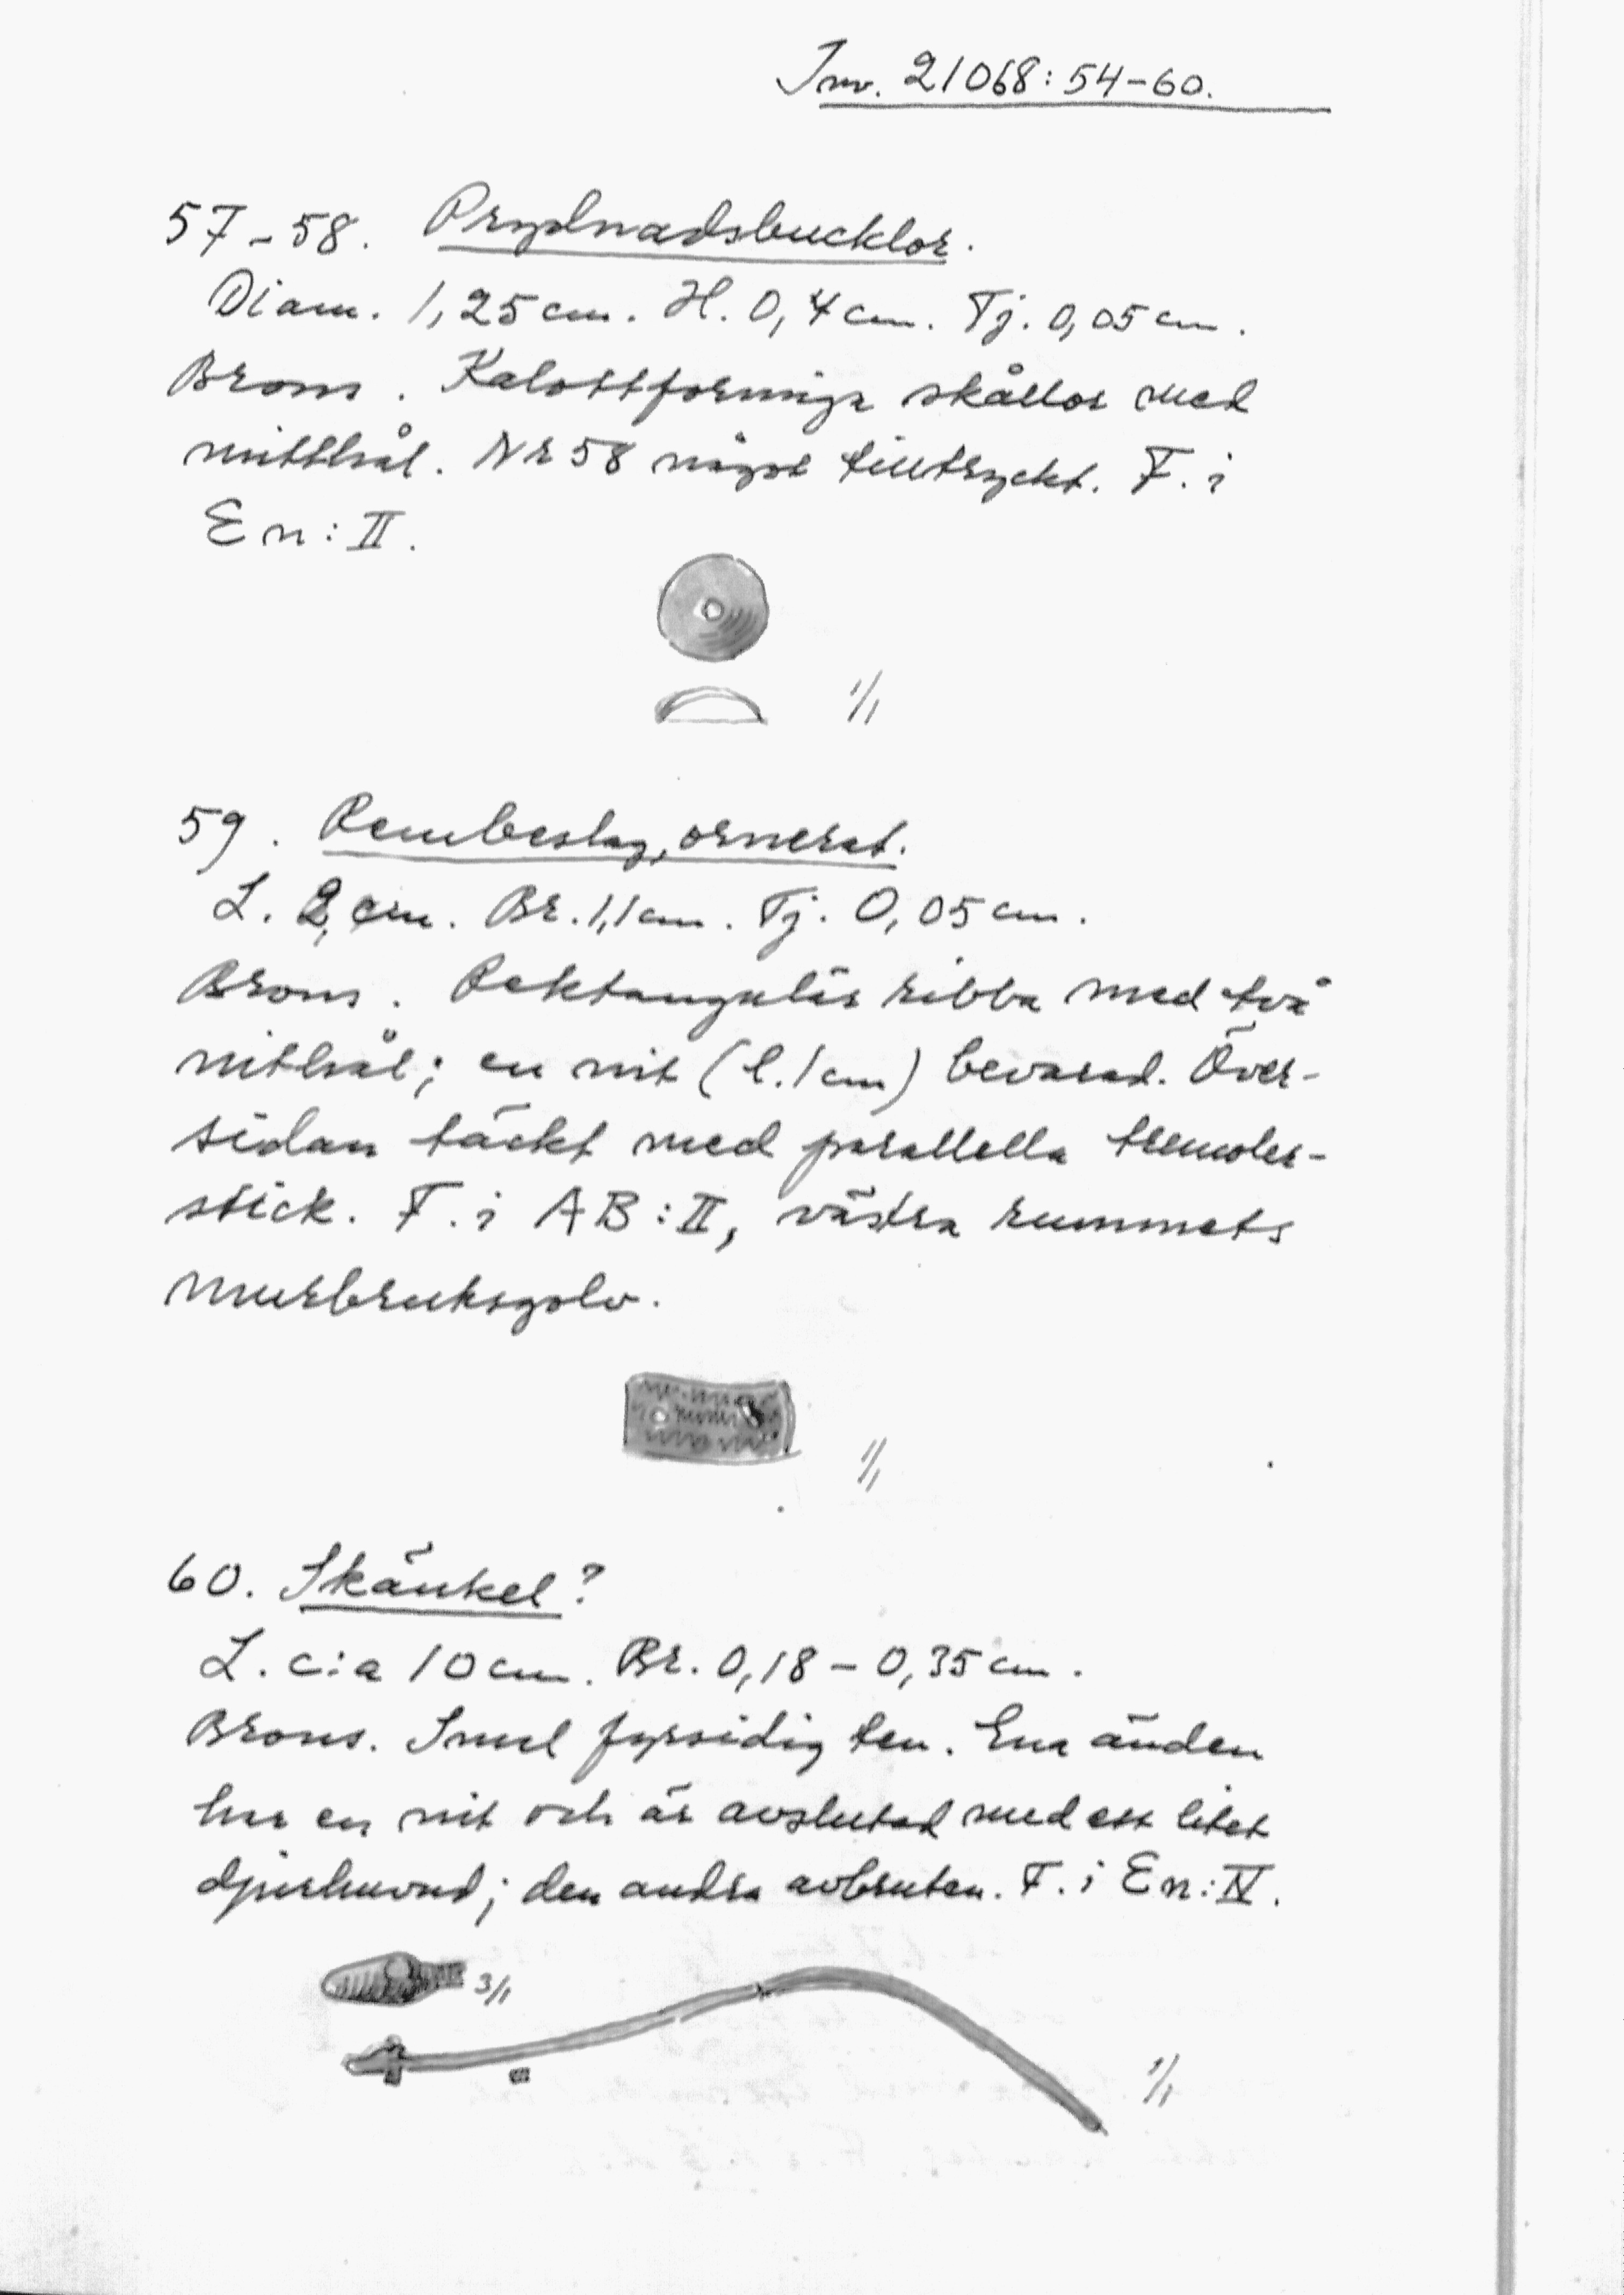 Inv. 21068:54-60.
57-58. Prydnadsbucklor.
Diam. 1,25 cm. H. 0,4 cm. Tj. 0,05 cm.
Brons. Kalottformiga skållor med
mitthål. Nr 58 något tilltryckt. F. i
En: II.
1/1
59. Rembeslag, ornerat.
L. 2, cm. Br. 1,1 cm. Tj. 0,05 cm.
Brons. Rektangulär ribba med två
nithål; en nit (l. 1 cm) bevarad. Över-
sidan täckt med parallella tremoler-
stick. F. i AB: II, västra rummets
murbruksgolv.
1/1
60. Skänkel?
L. c:a 10 cm. Br. 0,18 - 0,35 cm.
Brons. Smal fyrsidig ten. Ena änden
har en nit och är avslutad med ett litet
djurhuvud; den andra avbruten. F. i En: IV.
3/1
1/1